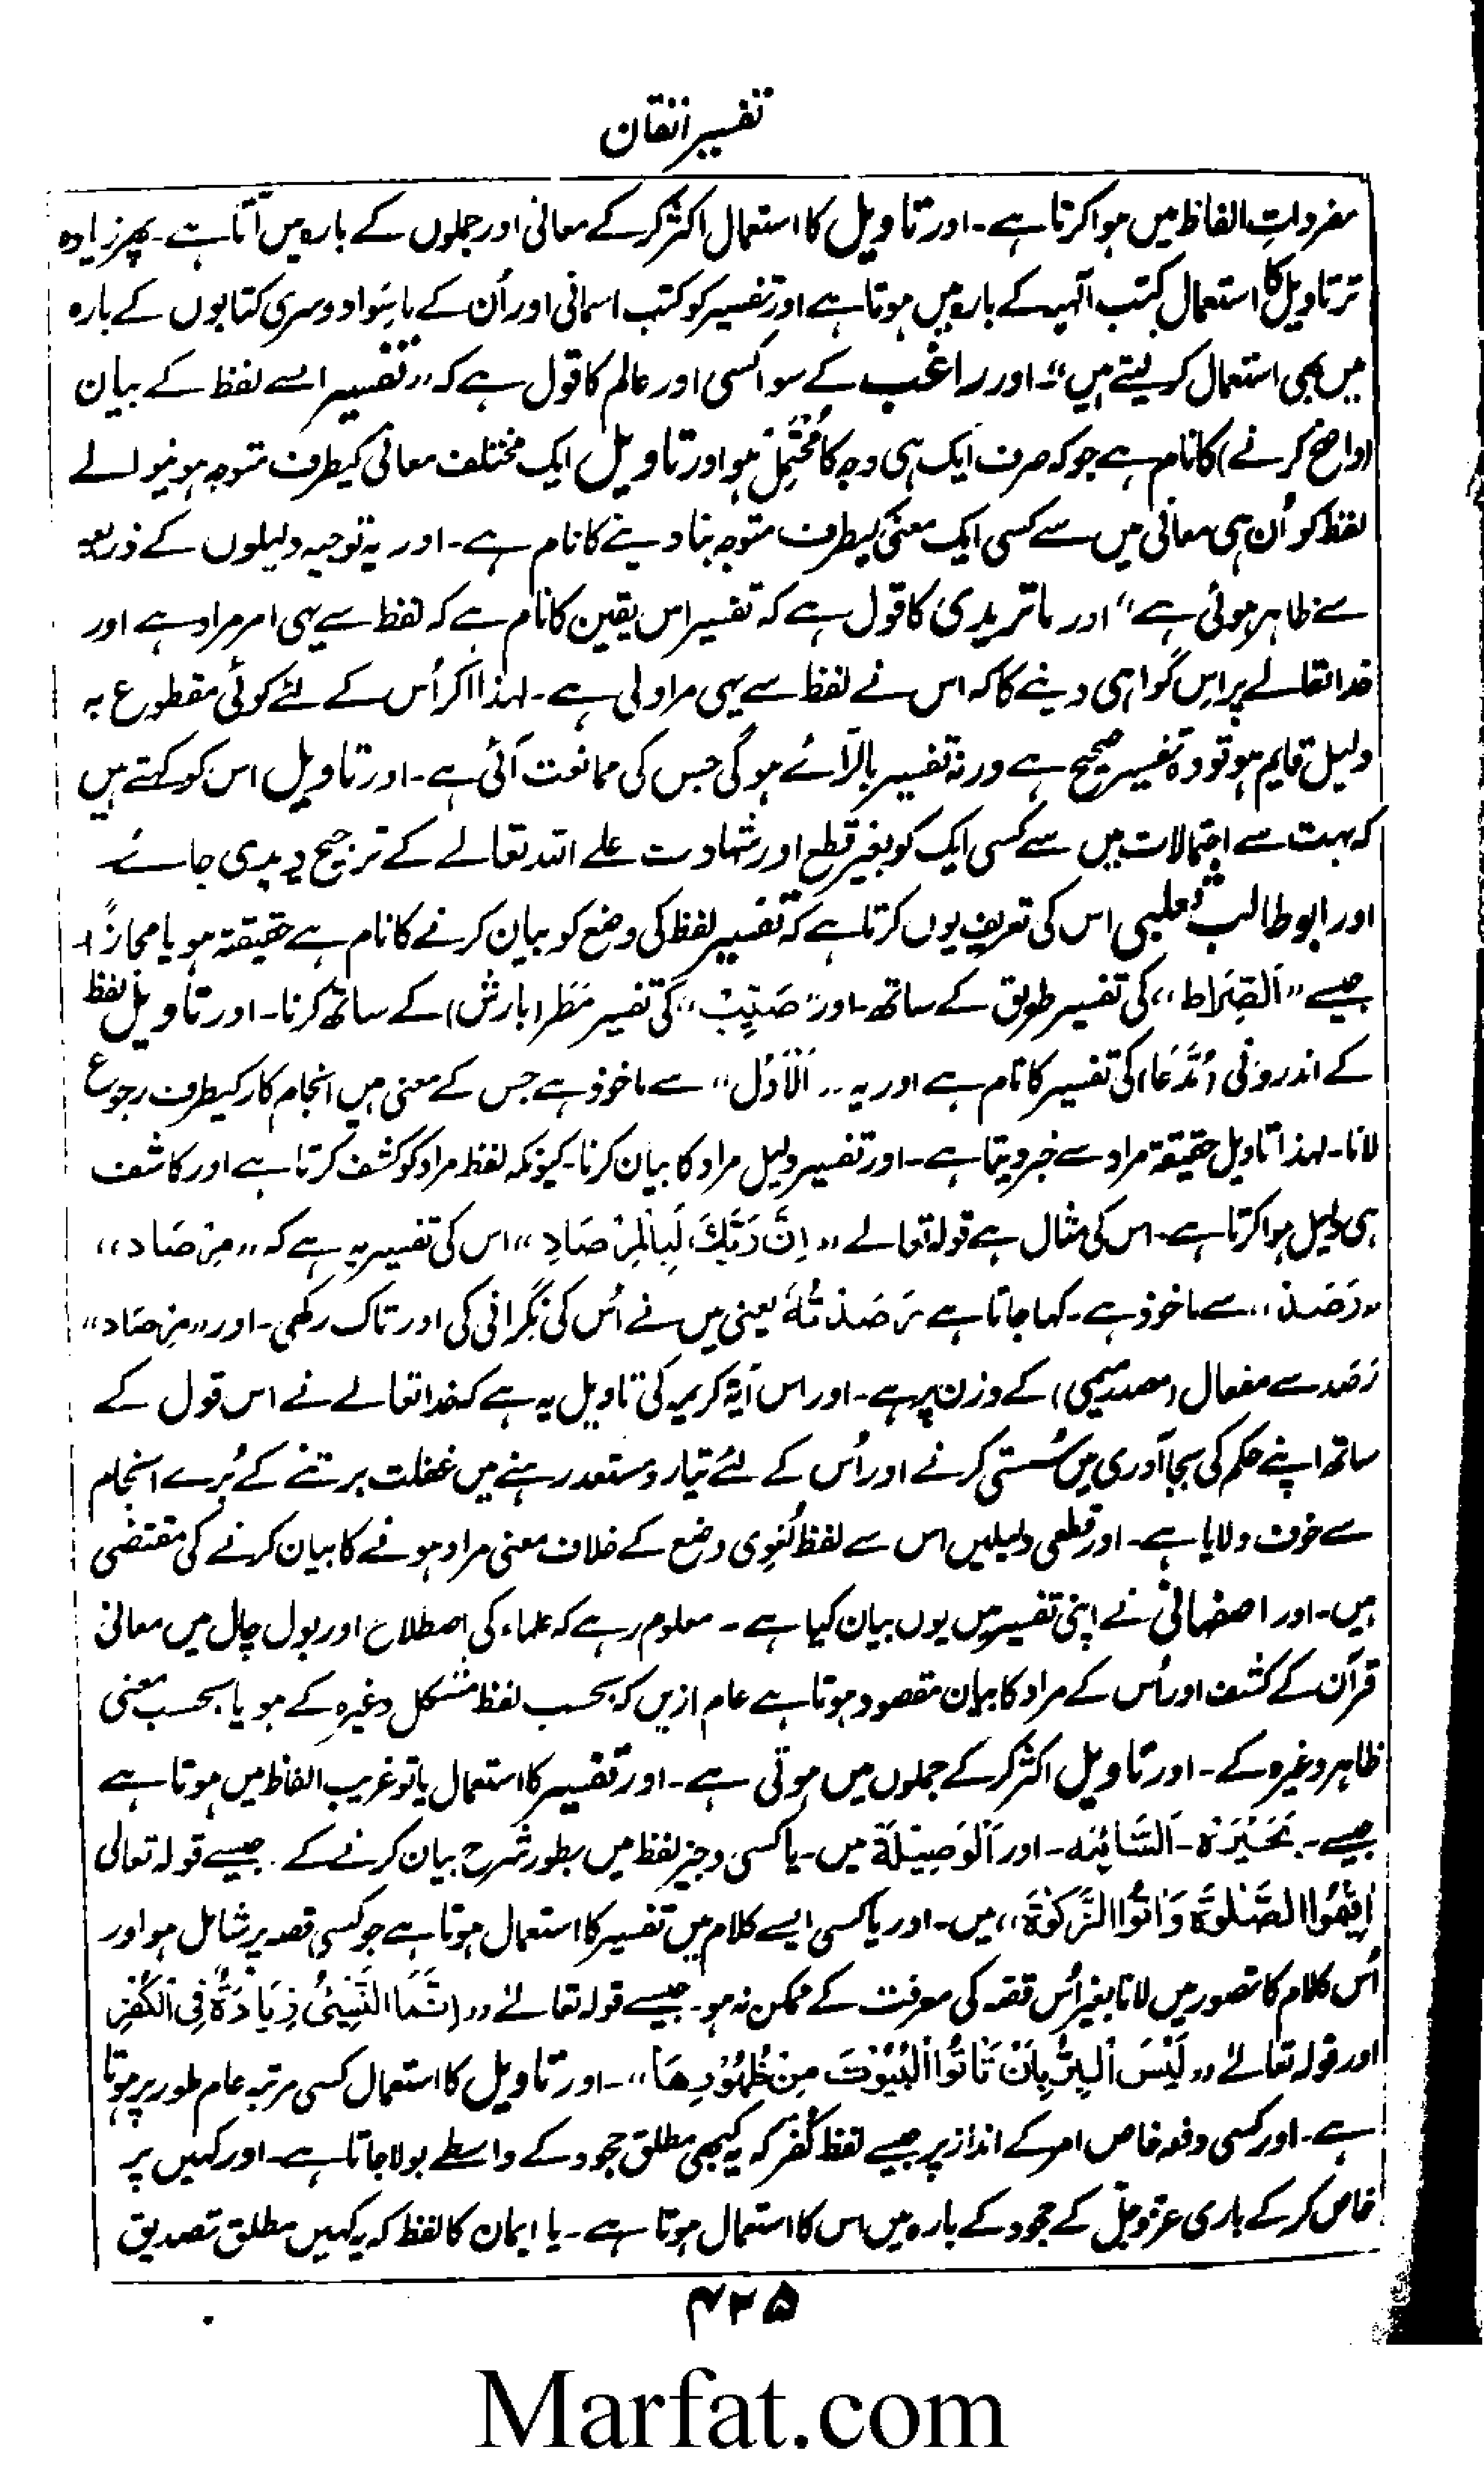 تفسیر اتقان
مفرداتِ الفاظ میں ہوا کرتا ہے۔ اور تاویل کا استعمال اکثر کر کے معانی اور جملوں کے بارہ میں آتا ہے۔ پھر زیادہ
تر تاویل کا استعمال کتب الٰہیہ کے بارہ میں ہوتا ہے اور تفسیر کو کتب اسمانی اور اُن کے ماسِوا دوسری کتابوں کے بارہ
میں بھی استعمال کر لیتے ہیں“۔ اور راغب کے سوا کسی اور عالم کا قول ہے کہ ”تفسیر ایسے لفظ کے بیان
(واضح کرنے) کا نام ہے جو کہ صرف ایک ہی وجہ کا مُحْتَمِلْ ہو اور تاویل ایک مختلف معانی کیطرف متوجہ ہونیوالے
لفظ کو اُن ہی معانی میں سے کسی ایک معنیٰ کیطرف متوجہ بنا دینے کا نام ہے۔ اور یہ توجیہ دلیلوں کے ذریعہ
سے ظاہر ہوئی ہے“ اور ماتریدی کا قول ہے کہ تفسیر اس یقین کا نام ہے کہ لفظ سے یہی امر مراد ہے اور
خدا تعالےٰ پر اِس گواہی دینے کا کہ اس نے لفظ سے یہی مراد لی ہے۔ لہذا اگر اُس کے لئے کوئی مقطوع بہ
دلیل قایم ہو تو وہ تفسیر صحیح ہے ورنہ تفسیر بالرّائے ہوگی جس کی ممانعت آئی ہے۔ اور تاویل اس کو کہتے ہیں
کہ بہت سے احتمالات میں سے کسی ایک کو بغیر قطع اور شہادت علے اللہ تعالےٰ کے ترجیح دیدی جائے۔
اور ابو طالب ثعلبی اس کی تعریف یوں کرتا ہے کہ تفسیر لفظ کی وضع کو بیان کرنے کا نام ہے حقیقۃ ہو یا مجازًا۔
جیسے ”اَلصِّرَاط“ کی تفسیر طریق کے ساتھ۔ اور ”صَیِّبْ“ کی تفسیر مَطَر (بارش) کے ساتھ کرنا۔ اور تاویل لفظ
کے اندرونی (مُدَّعَا) کی تفسیر کا نام ہے اور یہ ”اَلْاَوْل“ سے ماخوذ ہے جس کے معنی ہیں انجام کار کیطرف رجوع
لانا۔ لہذا تاویل حقیقۃ مراد سے خبر دیتا ہے۔ اور تفسیر دلیل مراد کا بیان کرنا۔ کیونکہ لفظ مراد کو کشف کرتا ہے اور کاشف
ہی دلیل ہوا کرتا ہے۔ اس کی مثال ہے قولہ تعالےٰ ”اِنَّ رَبَّكَ لَبِالْمِرْصَادِ“ اس کی تفسیر یہ ہے کہ ”مِرْصَاد“
”رَصَد“ سے ماخوذ ہے۔ کہا جاتا ہے رَصَدْتُهٗ یعنی میں نے اُس کی نگرانی کی اور تاک رکھی۔ اور ”مِرْصَاد“
رَصَد سے مفعال (مصدر میمی) کے وزن پر ہے۔ اور اس آیۃ کریمہ کی تاویل یہ ہے کہ خدا تعالےٰ نے اس قول کے
ساتھ اپنے حکم کی بجا آوری میں سُستی کرنے اور اُس کے لئے تیار و مستعد رہنے میں غفلت برتنے کے بُرے انجام
سے خوف دلایا ہے۔ اور قطعی دلیلیں اس سے لفظ لُغوی وضع کے خلاف معنی مراد ہونے کا بیان کرنے کی مقتضی
ہیں۔ اور اصفہانی نے اپنی تفسیر میں یوں بیان کیا ہے۔ معلوم رہے کہ علماء کی اصطلاح اور بول چال میں معانی
قرآن کے کشف اور اُس کے مراد کا بیان مقصود ہوتا ہے عام ازیں کہ بحسب لفظ مشکل وغیرہ کے ہو یا بحسب معنی
ظاہر وغیرہ کے۔ اور تاویل اکثر کر کے جملوں میں ہوتی ہے۔ اور تفسیر کا استعمال یا تو غریب الفاظ میں ہوتا ہے
جیسے۔ بَحِیْرَہ۔ اَلسَّائِبَہ۔ اور اَلْوَصِیْلَۃ میں۔ یا کسی وجیز لفظ میں بطور شرح بیان کرنے کے۔ جیسے قولہ تعالیٰ
اَقِیْمُوا الصَّلٰوۃَ وَاٰتُوا الزَّکٰوۃَ“ میں۔ اور یا کسی ایسے کلام میں تفسیر کا استعمال ہوتا ہے جو کسی قصہ پر شامل ہو اور
اُس کلام کا تصور میں لانا بغیر اُس قصّہ کی معرفت کے ممکن نہ ہو۔ جیسے قولہ تعالےٰ ”اِنَّمَا النَّسِیْئُ زِیَادَۃٌ فِی الْکُفْرِ
اور قولہ تعالےٰ ”لَیْسَ الْبِرُّ بِاَنْ تَاتُوا الْبُیُوْتَ مِنْ ظُهُوْرِهَا“۔ اور تاویل کا استعمال کسی مرتبہ عام طور پر ہوتا
ہے۔ اور کسی دفعہ خاص امر کے انداز پر جیسے لفظ کُفر کہ یہ کبھی مطلق جحود کے واسطے بولا جاتا ہے۔ اور کہیں پر
خاص کر کے باری عزّوجلّ کے جحود کے بارہ میں اس کا استعمال ہوتا ہے۔ یا ایمان کا لفظ کہ یہ کہیں مطلق تصدیق
۴۲۵
Marfat.com